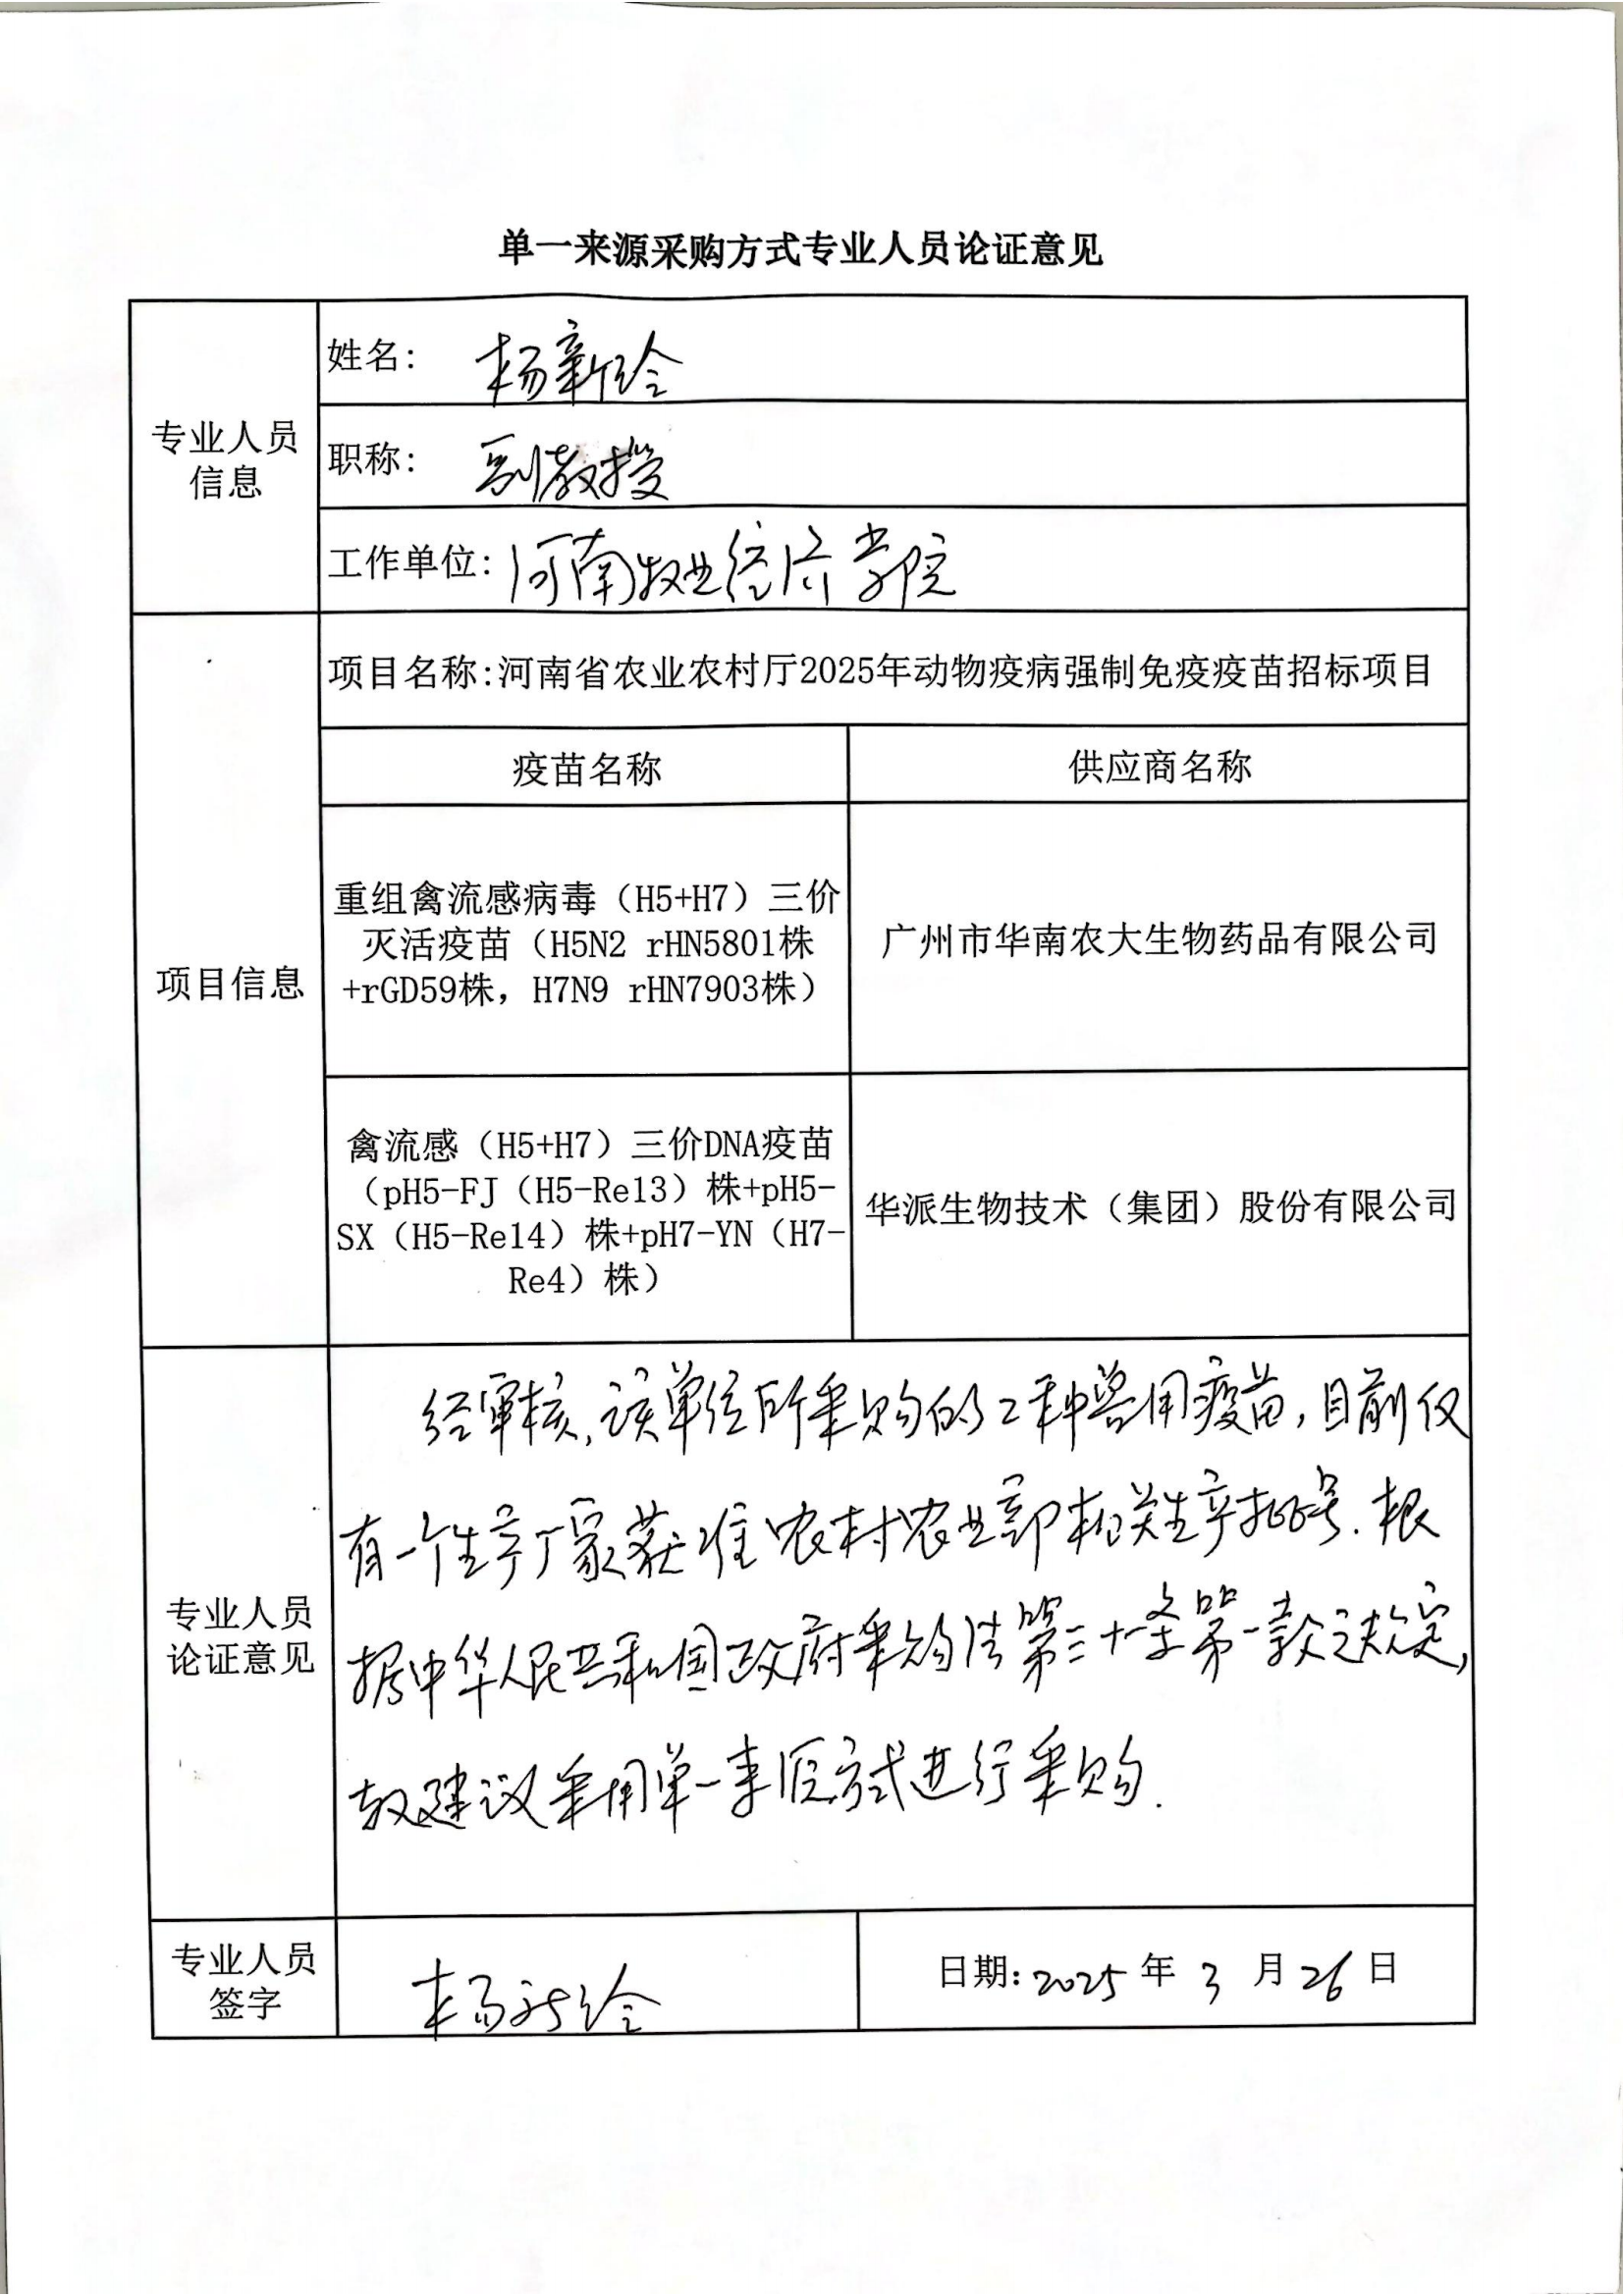 单一来源采购方式专业人员论证意见
专业人员
信息
姓名: 杨新玲
职称: 副教授
工作单位: 河南牧业经济学院
项目信息
项目名称:河南省农业农村厅2025年动物疫病强制免疫疫苗招标项目
疫苗名称
供应商名称
重组禽流感病毒（H5+H7）三价
灭活疫苗（H5N2 rHN5801株
+rGD59株，H7N9 rHN7903株）
广州市华南农大生物药品有限公司
禽流感（H5+H7）三价DNA疫苗
（pH5-FJ（H5-Re13）株+pH5-
SX（H5-Re14）株+pH7-YN（H7-
Re4）株）
华派生物技术（集团）股份有限公司
专业人员
论证意见
经审核,该单位所采购的2种兽用疫苗,目前仅
有一个生产厂家获准农村农业部相关生产批号.根
据中华人民共和国政府采购法第三十一条第一款之规定,
故建议采用单一来源方式进行采购.
专业人员
签字
杨新玲
日期: 2025 年 3 月 26 日